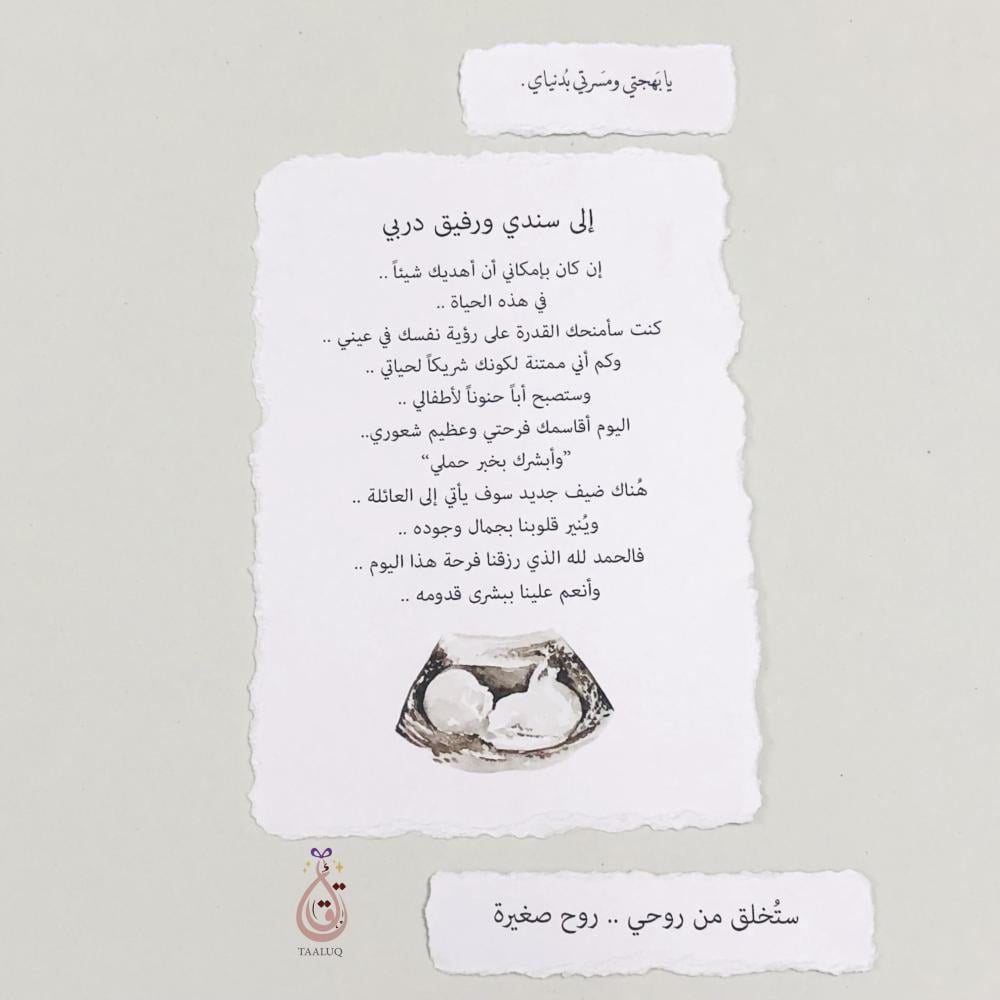 يا بَهجتي ومسَرتي بُدنياي .
إلى سندي ورفيق دربي
إن كان بإمكاني أن أهديك شيئاً ..
في هذه الحياة ..
كنت سأمنحك القدرة على رؤية نفسك في عيني ..
وكم أني ممتنة لكونك شريكاً لحياتي ..
وستصبح أباً حنوناً لأطفالي ..
اليوم أقاسمك فرحتي وعظيم شعوري..
”وأبشرك بخبر حملي“
هُناك ضيف جديد سوف يأتي إلى العائلة ..
ويُنير قلوبنا بجمال وجوده ..
فالحمد لله الذي رزقنا فرحة هذا اليوم ..
وأنعم علينا ببشرى قدومه ..
TAALUQ
ستُخلق من روحي .. روح صغيرة